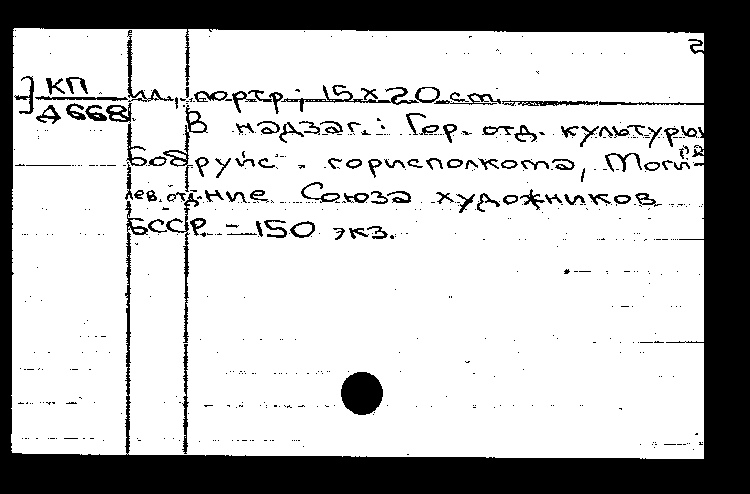 2
КП
А668
ил., портр; 15×20 cm.
В надзаг.: Гор. отд. культуры
Бобруйс. горисполкома, Моги-
лев. отд-ние Союза художников
БССР. - 150 экз.